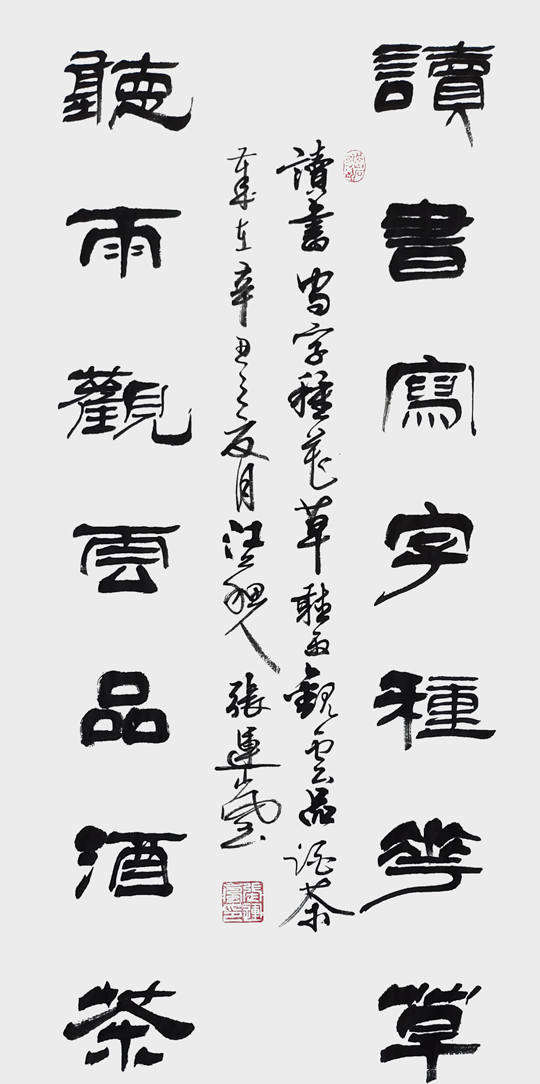 讀書寫字種華草
讀書寫字種花草聽雨觀雲品酒茶
歲在辛丑之夏月 人 張運
聽雨觀雲品酒茶